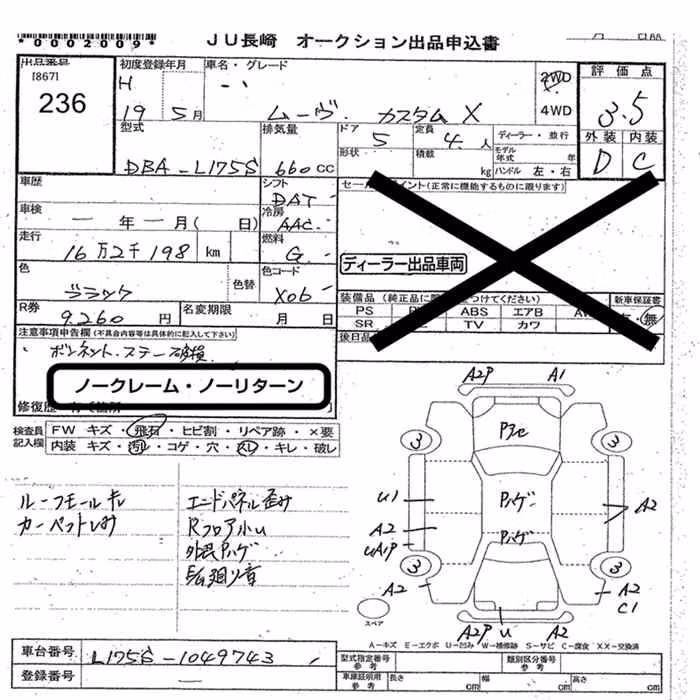 *0002009*
JU長崎 オークション出品申込書
出品番号
[867]
236
初度登録年月
H
19 5月
車名・グレード
ムーヴ カスタム X
2WD
4WD
評価点
3.5
外装 内装
D C
型式
DBA-L175S
排気量
660cc
ドア 5
形状
定員 4人
積載 kg
ディーラー・並行
モデル年式 年
ハンドル 左・右
車歴
シフト
DAT
車検
ー年ー月( 日)
冷房
AAC
走行
16万2千198 km
燃料
G
色
ブラック
色替
色コード
X06
R券
9,260円
名変期限
月 日
セールスポイント(正常に機能するものに限ります)
ディーラー出品車両
装備品(純正品に
つけてください)
新車保証書
PS ABS エアB
無
SR TV カワ
後日品
注意事項申告欄(不具合内容等は具体的に記入して下さい)
ボンネット.ステー破損
ノークレーム・ノーリターン
修復歴
検査員記入欄
FW キズ・飛石・ヒビ割・リペア跡・×要
内装 キズ・汚レ・コゲ・穴・スレ・キレ・破レ
ルーフモールキレ
エンドパネル歪み
RフロアI小U
外装Pハゲ
A2P A1
P3e
3 3
U1
Pハゲ
A2
A2
Pハゲ
UA1P
3 3
A2 A2
C1
スペア
A2P U A2
A-キズ E-エクボ U-凹み W-補修跡 S-サビ C-腐食 XX-交換済
車台番号
L175S-1049743
登録番号
ー
型式指定番号
参考
類別区分番号
参考
車庫証明用
参考
長さ cm 幅 cm 高さ cm